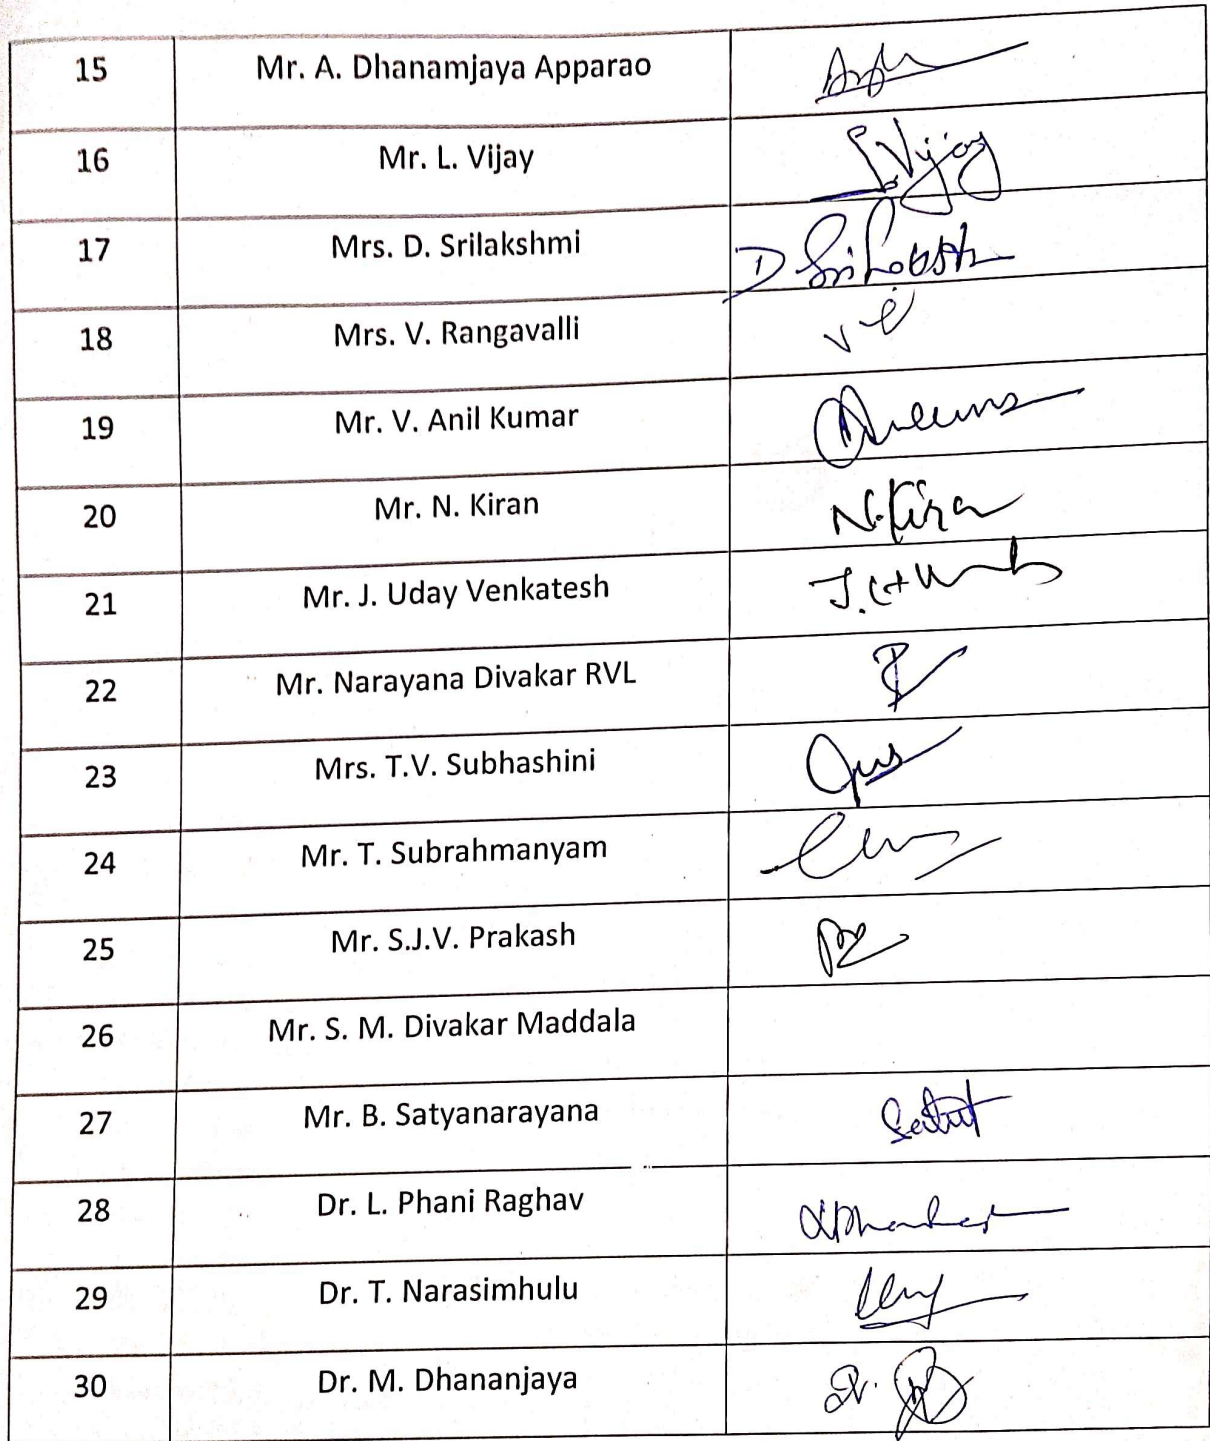 15 Mr. A. Dhanamjaya Apparao
16 Mr. L. Vijay L.Vijay
17 Mrs. D. Srilakshmi D Srilakshmi
18 Mrs. V. Rangavalli
19 Mr. V. Anil Kumar
20 Mr. N. Kiran N.Kiran
21 Mr. J. Uday Venkatesh
22 Mr. Narayana Divakar RVL
23 Mrs. T.V. Subhashini
24 Mr. T. Subrahmanyam
25 Mr. S.J.V. Prakash
26 Mr. S. M. Divakar Maddala
27 Mr. B. Satyanarayana
28 Dr. L. Phani Raghav
29 Dr. T. Narasimhulu
30 Dr. M. Dhananjaya